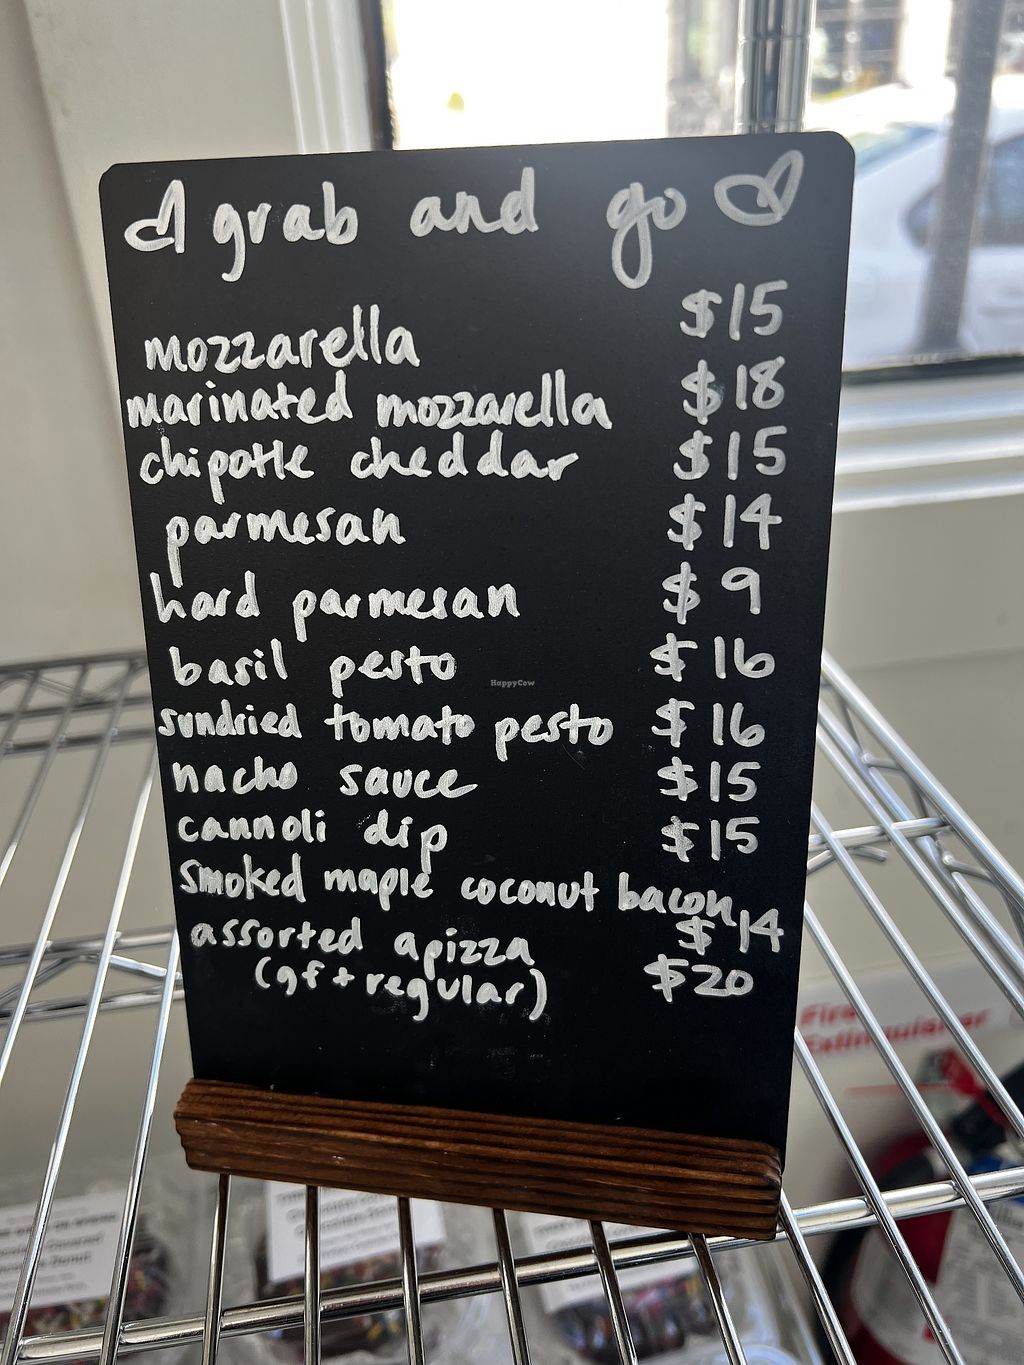 grab and go
mozzarella $15
marinated mozzarella $18
chipotle cheddar $15
parmesan $14
hard parmesan $9
basil pesto $16
sundried tomato pesto $16
nacho sauce $15
cannoli dip $15
smoked maple coconut bacon $14
assorted apizza
(gf + regular) $20
HappyCow
Fire
Extinguisher